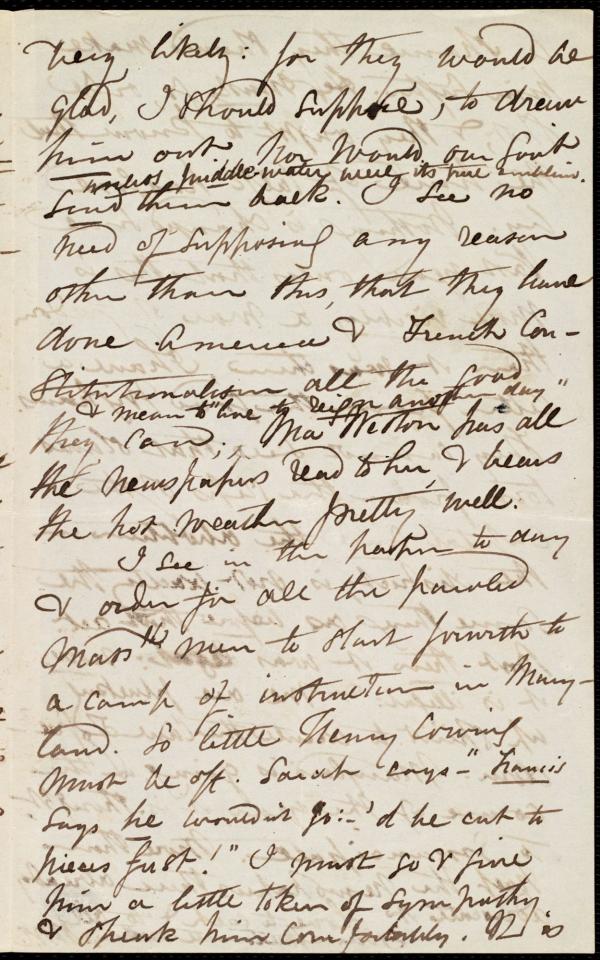 very likely: for they would be
glad, I should suppose, to draw
him out nor would our Gov't
unless middle-water were its true emblem.
send them back. I see no
need of supposing any reason
other than this, that they have
done America & French Con-
stitutionalism all the good
& mean to "live to reign another day"
they can; Ma Weston has all
the newspapers read to her, & bears
the hot weather pretty well.
I see in the paper to day
& order for all the paroled
Massts men to start forwith to
a camp of instruction in Mary-
land. So little Henry Cowing
must be off. Sarah says - "Francis
says he wouldn't go: - 'd be cut to
pieces fust!" I must go & give
him a little token of sympathy
& speak him comfortably. It is